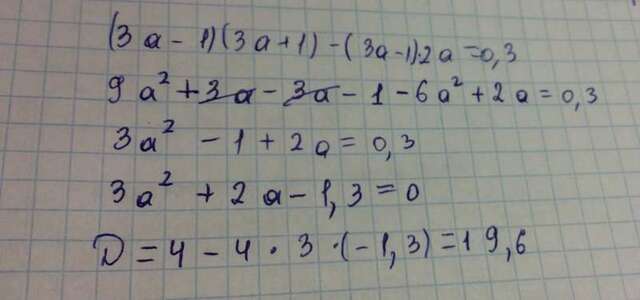 (3a - 1)(3a+1) - (3a-1)2a = 0,3
9a² + 3a - 3a - 1 - 6a² + 2a = 0,3
3a² - 1 + 2a = 0,3
3a² + 2a - 1,3 = 0
D = 4 - 4 · 3 · (-1,3) = 19,6